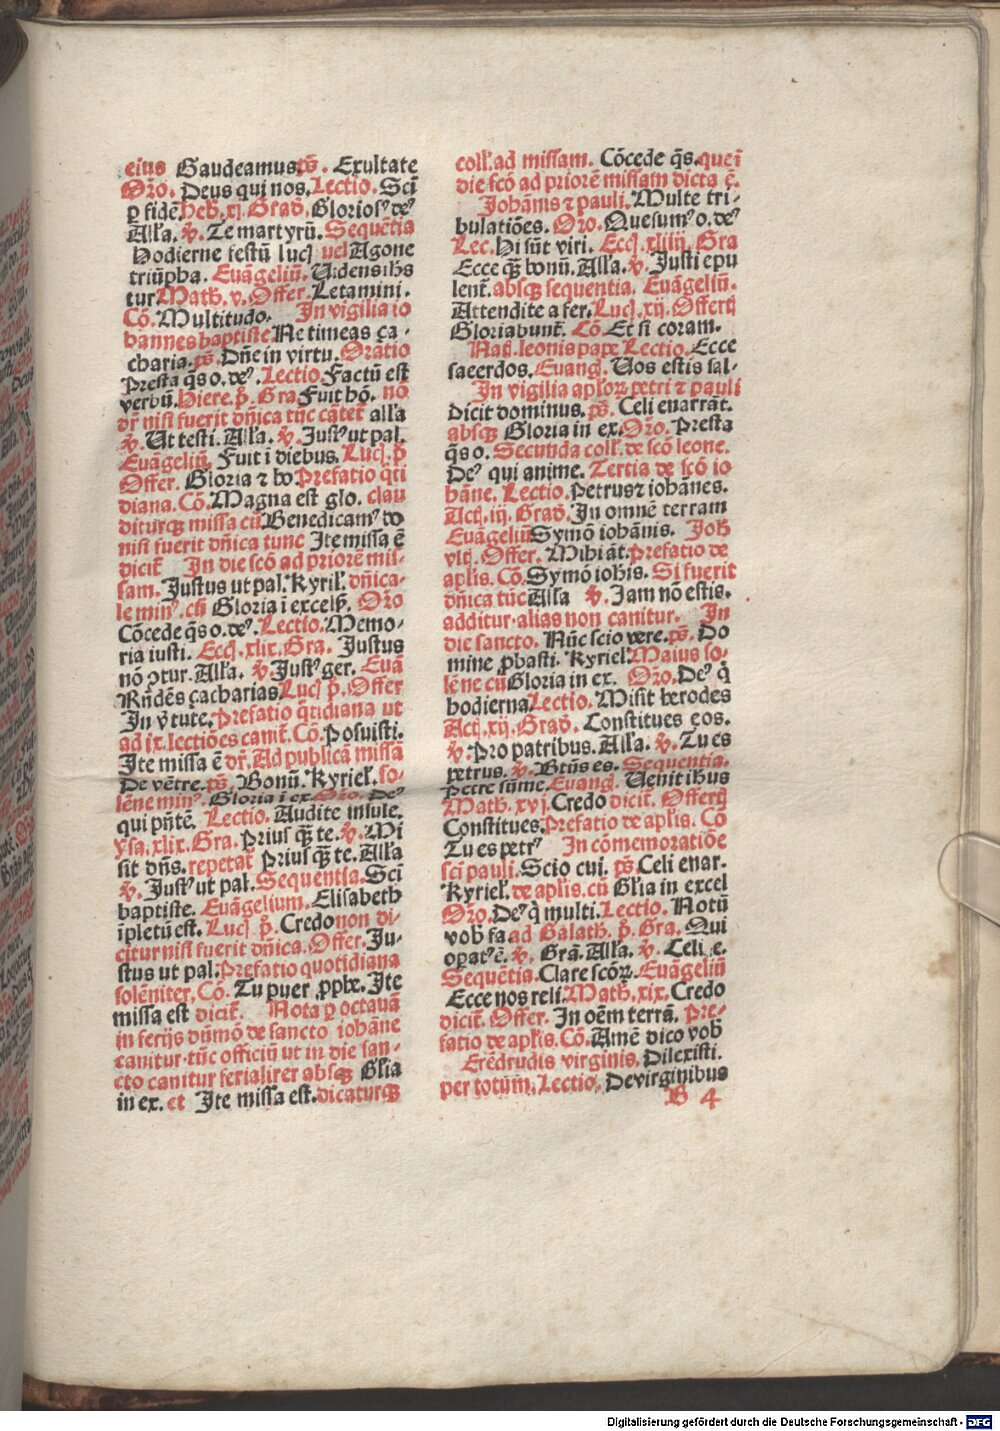 eius Gaudeamus. p̃s. Exultate
Or̃o. Deus qui nos. Lectio. Sci
ꝑ fidē. Heb̃. xj. Grad̃. Glorios⁹ de⁹
Alľa. v̓. Te martyrū. Sequētia
Hodierne festū lucꝭ uel Agone
triūpha. Euāgeliū. Uidens ihs
tur Math̃. v. Offer. Letamini.
Cō. Multitudo. In vigilia io
hannes baptiste Ne timeas ça-
charia. p̃s. Dñe in virtu. Oratio
Presta q̃s o. de⁹. Lectio. Factū est
verbū. Hiere. p̃. Gra Fuit hō. nō
dr̄ nisi fuerit dñica tūc cātet᷑ alľa
v̓. Ut testi. Alľa. v̓. Just⁹ ut pal.
Euāgeliū. Fuit ī diebus. Lucꝭ. p̃
Offer. Gloria ⁊ ho Prefatio q̄ti
diana. Cō. Magna est glo. clau
diturqꝫ missa cū Benedicam⁹ do
nisi fuerit dñica tunc Ite missa ē
dicit᷑ In die scō ad priorē mis-
sam. Justus ut pal. Kyriel̓. dñica-
le min⁹. cū Gloria ī excels̓. Or̃o
Cōcede q̃s o. de⁹. Lectio. Memo-
ria iusti. Eccꝭ. xlix. Gra. Justus
nō ꝯtur. Alľa. v̓ Just⁹ ger. Euā
Rñdēs çacharias Lucꝭ p̃. Offer
In v̓tute. Prefatio q̄tidiana ut
ad ix. lectiōes canit᷑. Cō. Posuisti.
Ite missa ē dr̄. Ad publicā missā
De vētre. p̃s. Bonū. Kyriel̓. so-
lēne min⁹. Gloria ī ex. Or̃o. De⁹
qui pñtē. Lectio. Audite insule.
Ysa. xlix. Gra. Prius q̃ꝫ te. v̓. Mi
sit dñs. repetat᷑ Prius q̃ꝫ te. Alľa
v̓. Just⁹ ut pal. Sequentia. Sci
baptiste. Euāgelium. Elisabeth
īpletū est. Lucꝭ p̃. Credo non di-
citur nisi fuerit dñica. Offer. Ju-
stus ut pal. Prefatio quotidiana
solēniter. Cō. Tu puer ꝓphe. Ite
missa est dicit᷑. Nota ꝑ octauā
in ferijs dūmō de sancto iohāne
canitur. tūc officiū ut in die san-
cto canitur ferialirer absqꝫ Gľia
in ex. et Ite missa est. dicaturqꝫ
coll̓. ad missam. Cōcede q̃s. que ī
die scō ad priorē missam dicta ē.
Johānis ⁊ pauli. Multe tri-
bulatiōes. Or̃o. Quesum⁹ o. de⁹
Lec. Hi sūt viri. Eccꝭ. xliiij. Gra
Ecce q̃ꝫ bonū. Alľa. v̓. Justi epu
lent᷑. absqꝫ sequentia. Euangeliū.
Attendite a fer. Lucꝭ. xij. Offertꝭ
Gloriabunt᷑. Cō. Et si coram.
Nat̃. leonis pape Lectio. Ecce
sacerdos. Euangꝭ. Uos estis sal-
In vigilia aploꝝ petri ⁊ pauli
Dicit dominus. p̃s. Celi enarrāt.
absqꝫ Gloria in ex. Or̃o. Presta
q̃s o. Secunda coll̓. de scō leone.
De⁹ qui anime. Tertia de scō io
hāne. Lectio. Petrus ⁊ iohānes.
Actꝭ. iij. Grad̃. In omnē terram
Euāgeliū Symō iohānis. Joh̃
vltꝭ. Offer. Mihi āt. Prefatio de
apľis. Cō. Symō iohis. Si fuerit
dñica tūc Alľa v̓. Jam nō estis.
additur. alias non canitur. In
die sancto. Nūc scio vere. p̃s. Do
mine ꝓbasti. Kyriel̓. Maius so-
lēne cū Gloria in ex. Or̃o. De⁹ q̓
hodierna Lectio. Misit herodes
Actꝭ. xij. Grad̃. Constitues eos.
v̓. Pro patribus. Alľa. v̓. Tu es
petrus. v̓. Bt̄us es. Sequentia.
Petre sūme. Euangꝭ. Uenit ihus
Math̃. xvj. Credo dicit᷑. Offertꝭ
Constitues. Prefatio de apľis. Cō
Tu es petr⁹ In cōmemoratiōe
sci pauli. Scio cui. p̃s. Celi enar.
Kyriel̓. de apľis. cū Gľia in excel
Or̃o. De⁹ q̓ multi. Lectio. Notū
vob̃ fa ad Galath̃. p̃. Gra. Qui
opat᷑ ē. v̓. Grā. Alľa. v̓. Celi e.
Sequētia. Clare scōꝝ. Euāgeliū
Ecce nos reli. Math̃. xix. Credo
dicit᷑. Offer. In oēm terrā. Pre-
fatio de apľis. Cō. Amē dico vob̃
Erēdrudis virginis. Dilexisti.
per totum. Lectio. De virginibus
B 4
Digitalisierung gefördert durch die Deutsche Forschungsgemeinschaft - DFG